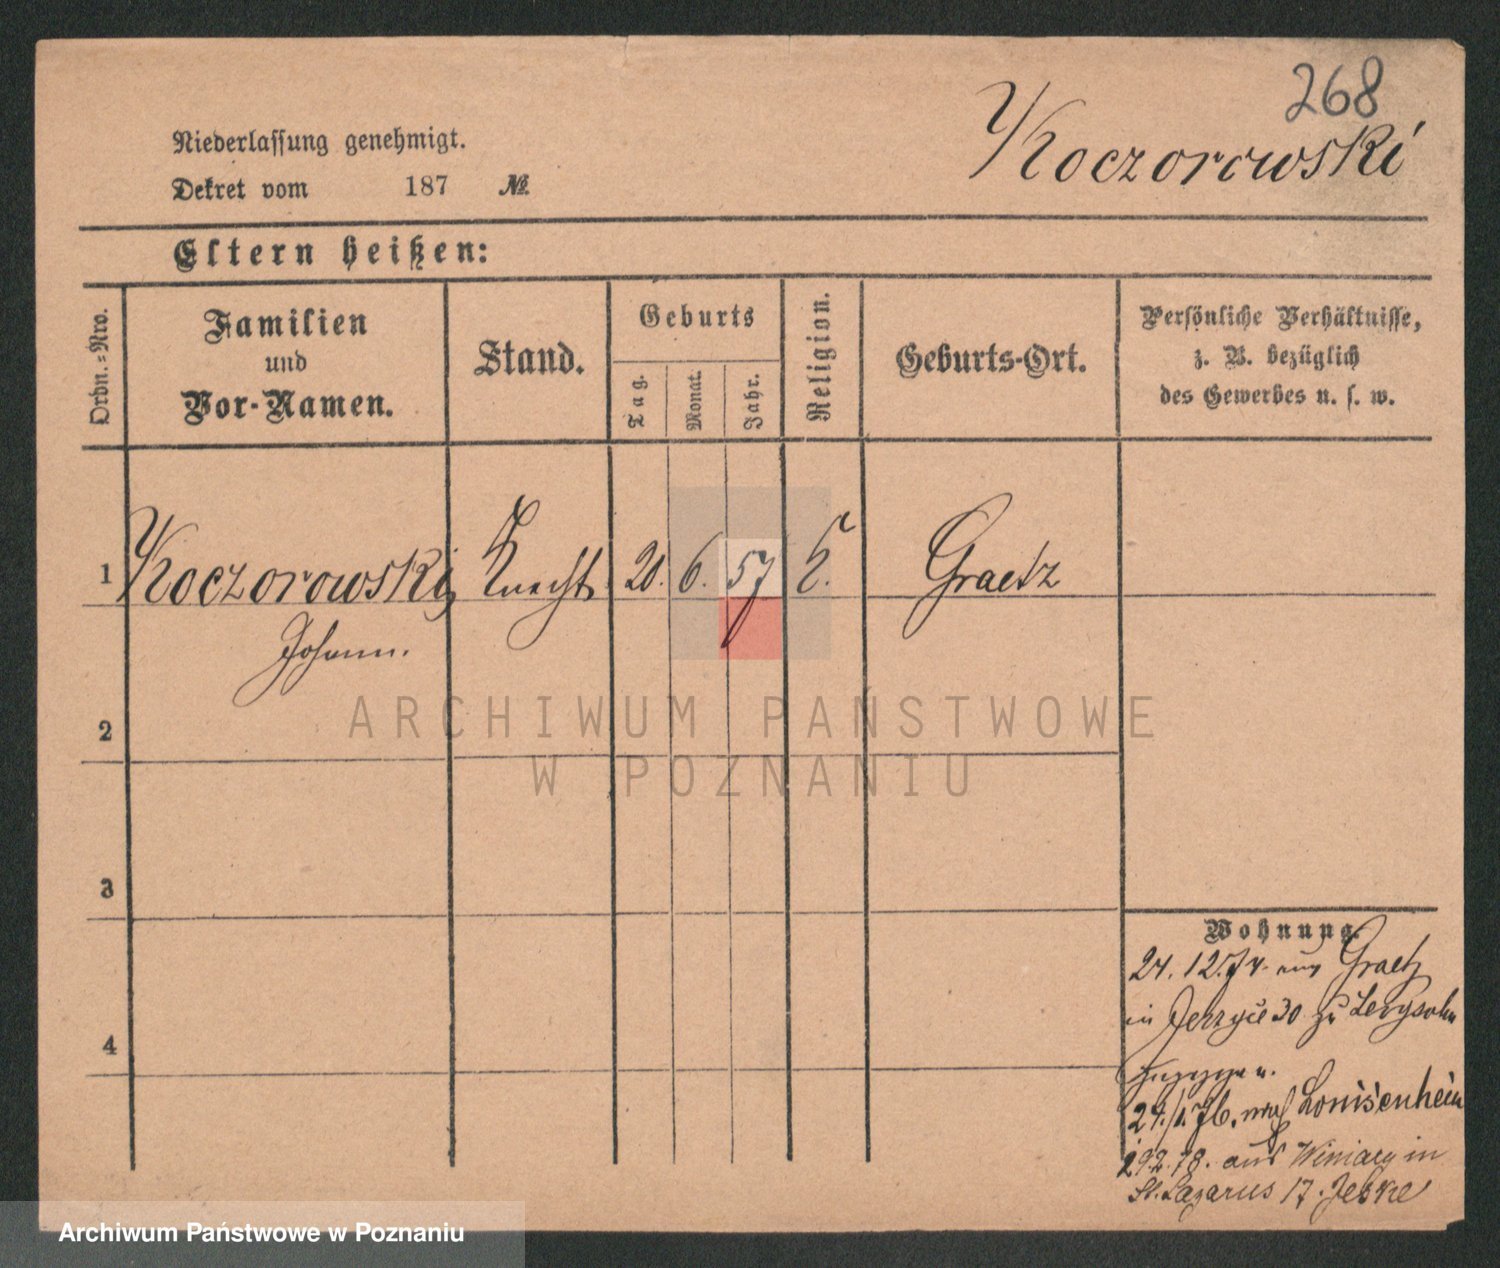 268
Koczorowski
Niederlassung genehmigt.
Dekret vom 187 №.
Eltern heißen:
Ordn.-Nro.
Familien
und
Vor-Namen.
Stand.
Geburts
Tag.
Monat.
Jahr.
Religion.
Geburts-Ort.
Persönliche Verhältnisse,
z. B. bezüglich
des Gewerbes u. s. w.
1 Koczorowski, Knecht 20. 6. 57 k. Graetz
Johann.
2
3
4
Wohnung.
24. 12. 74. aus Graetz
in Jerzyce 30 zu Levysohn
24./1. 76. nach Louisenhein
29.2.78. aus Winiary in
St. Lazarus 17. Jeske
ARCHIWUM PAŃSTWOWE
W POZNANIU
Archiwum Państwowe w Poznaniu